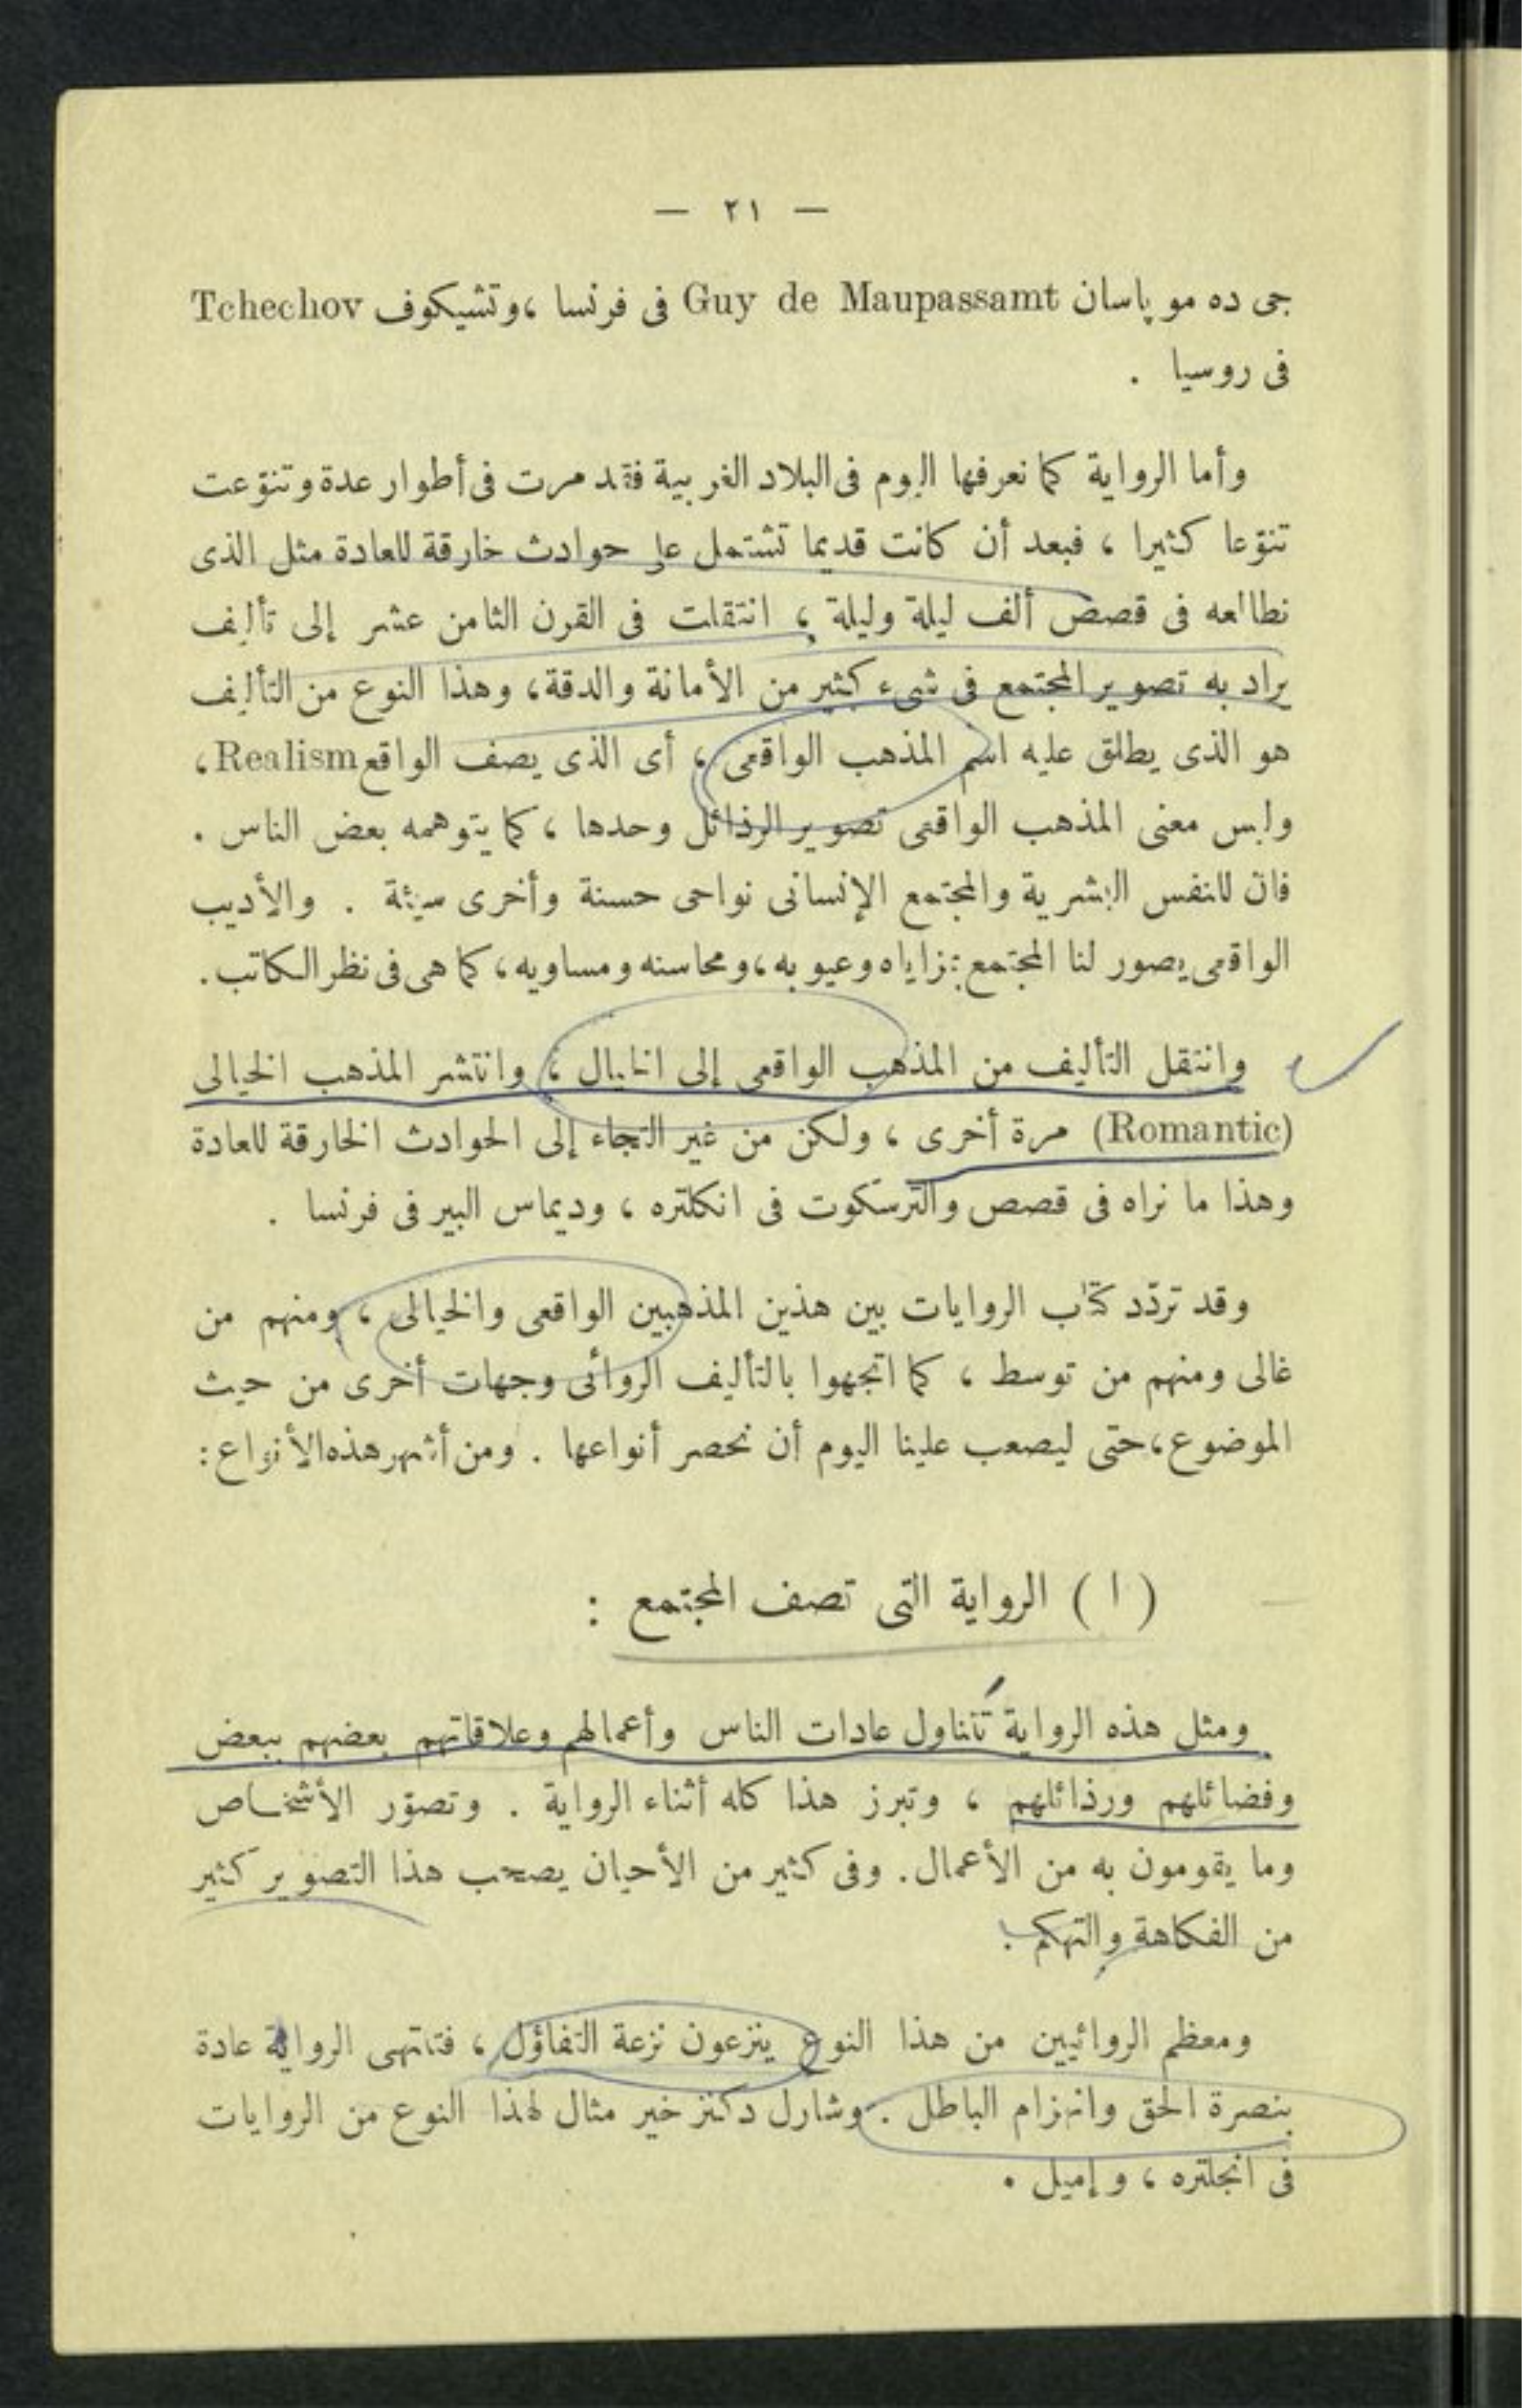 — ٢١ —
جى ده موپاسان Guy de Maupassamt فى فرنسا ، وتشيكوف Tchechov
فى روسيا .
وأما الرواية كما نعرفها اليوم فى البلاد الغربية فقد مرت فى أطوار عدة وتنوّعت
تنوّعا كثيرا ، فبعد أن كانت قديما تشتمل على حوادث خارقة للعادة مثل الذى
نطالعه فى قصص ألف ليلة وليلة ، انتقلت فى القرن الثامن عشر إلى تأليف
يراد به تصوير المجتمع فى شىء كثير من الأمانة والدقة ، وهذا النوع من التأليف
هو الذى يطلق عليه اسم المذهب الواقعى ، أى الذى يصف الواقع Realism ،
وليس معنى المذهب الواقعى تصوير الرذائل وحدها ، كما يتوهمه بعض الناس .
فان للنفس البشرية والمجتمع الإنسانى نواحى حسنة وأخرى سيئة . والأديب
الواقعى يصور لنا المجتمع بمزاياه وعيوبه ، ومحاسنه ومساويه ، كما هى فى نظر الكاتب .
وانتقل التأليف من المذهب الواقعى إلى الخيال ، وانتشر المذهب الخيالى
(Romantic) مرة أخرى ، ولكن من غير التجاء إلى الحوادث الخارقة للعادة
وهذا ما نراه فى قصص والترسكوت فى انكلتره ، وديماس البير فى فرنسا .
وقد تردّد كتّاب الروايات بين هذين المذهبين الواقعى والخيالى ، ومنهم من
غالى ومنهم من توسط ، كما اتجهوا بالتأليف الروائى وجهات أخرى من حيث
الموضوع ، حتى ليصعب علينا اليوم أن نحصر أنواعها . ومن أشهر هذه الأنواع :
( ١ ) الرواية التى تصف المجتمع :
ومثل هذه الرواية تتناول عادات الناس وأعمالهم وعلاقاتهم بعضهم ببعض
وفضائلهم ورذائلهم ، وتبرز هذا كله أثناء الرواية . وتصوّر الأشخاص
وما يقومون به من الأعمال . وفى كثير من الأحيان يصحب هذا التصوير كثير
من الفكاهة والتهكم .
ومعظم الروائيين من هذا النوع ينزعون نزعة التفاؤل ، فتنتهى الرواية عادة
بنصرة الحق وانهزام الباطل . وشارل دكنز خير مثال لهذا النوع من الروايات
فى انجلتره ، وإميل .